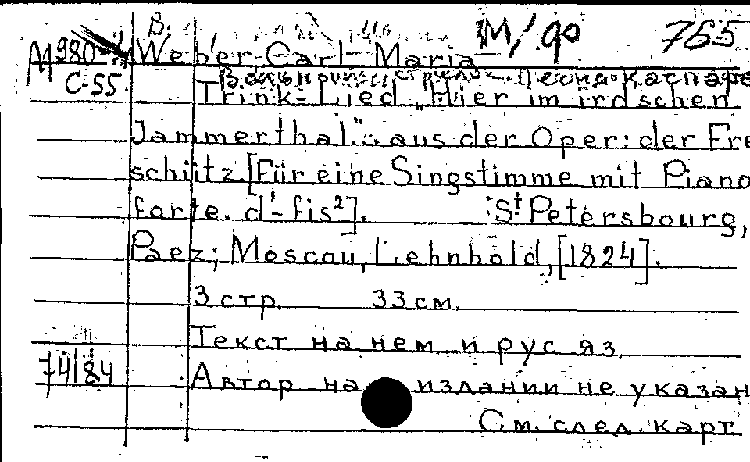 В. M/90 765
M 980-4 Weber Carl-Maria
C-55 Вольный стрелок. Песня Каспара
Trink-Lied „Hier im irdschen
Jammerthal": aus der Oper: der Fre
schütz [Für eine Singstimme mit Piano
forte. d¹-fis²]. St Petersbourg,
Paez; Moscau, Lehnhold, [1824].
3 стр. 33 см.
Текст на нем и рус яз.
74/84 Автор на издании не указан
См. след. карт